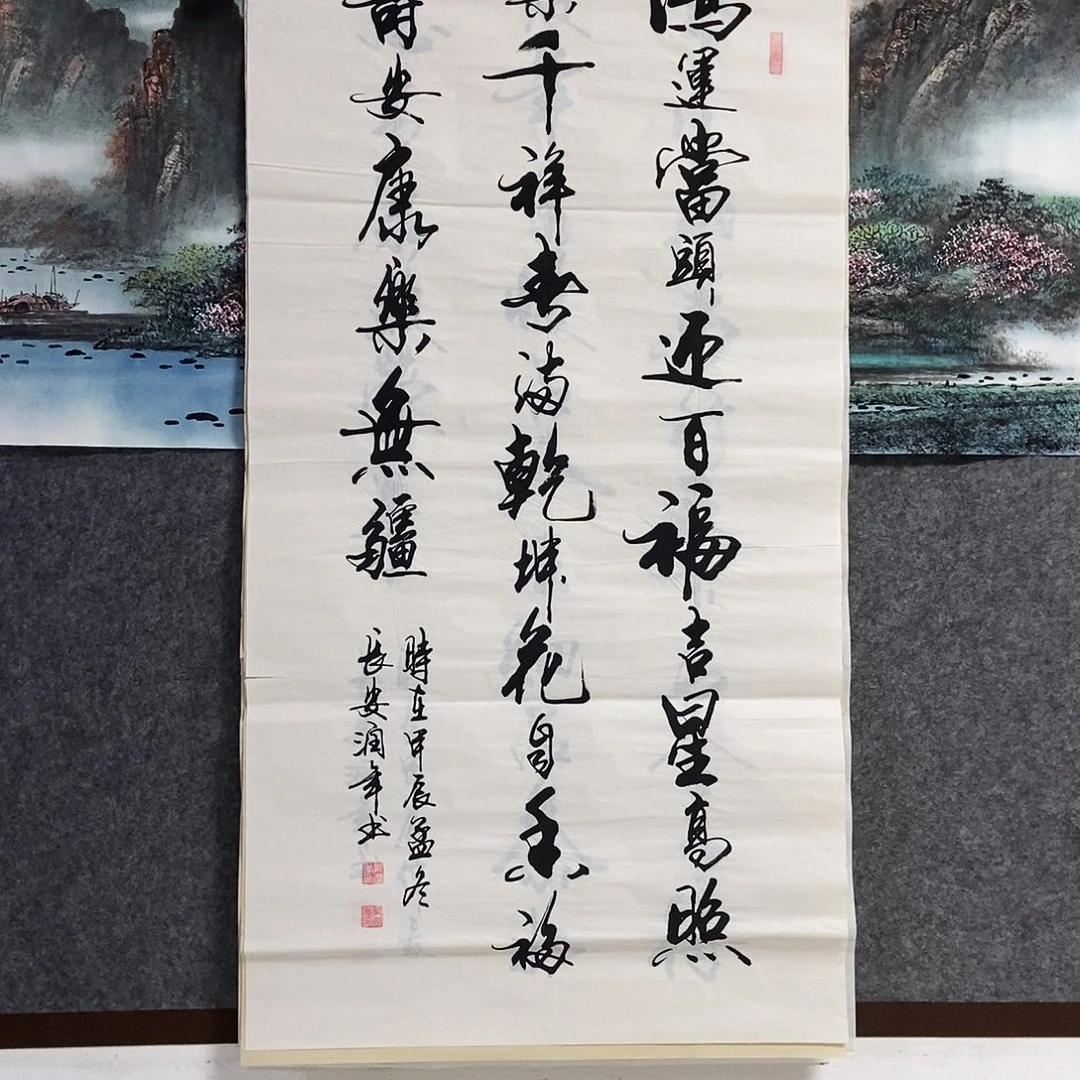 鴻運當頭迎百福吉星高照
集千祥春滿乾坤花自香福
壽安康樂無疆
時在甲辰孟冬
長安潤年书